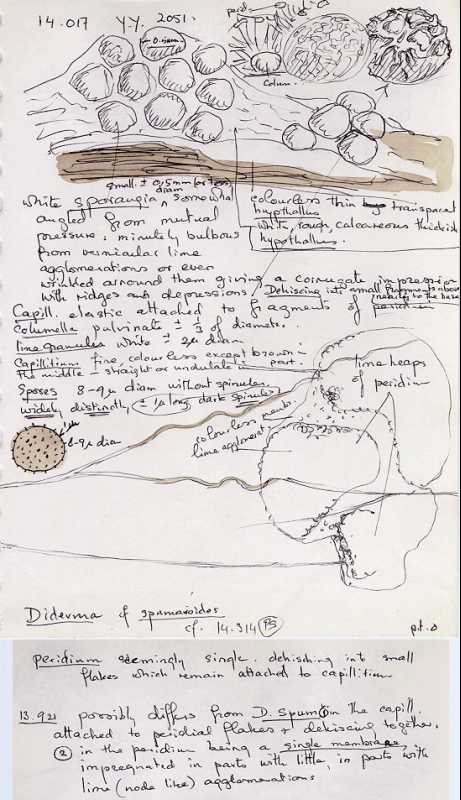 14.017 YY. 2051.
perid.
0.5mm
Colum.
small ± 0,5mm (or less)
diam
white sporangia, somewhat
angled from mutual
pressure, minutely bulbous
from vermicular lime
agglomerations or even
wrinkled around them giving a corrugate impression
with ridges and depressions, Dehiscing into small fragments above
nearly to the base
colourless thin transparent
hypothallus
white, rough, calcareous thickish
hypothallus.
Capill. elastic attached to fragments of peridium
Columella pulvinate ± 1/3 of diameter.
lime granules white ± 2µ diam
Capillitium fine, colourless except brown in
the middle ± straight or undulate in part.
Spores 8-9µ diam without spinules
widely distinctly, ± 1µ long dark spinules
8-9µ diam
colourless memb.
lime agglomerat
lime heaps
of peridium
Diderma cf spumaroides
cf. 14.314 PS
pt. o
peridium seemingly single. dehiscing into small
flakes which remain attached to capillitium
13.921 possibly differs from D. spum. (1) in the capill.
attached to peridial flakes & dehiscing together.
(2) in the peridium being a single membrane,
impregnated in parts with little, in parts with
lime (node like) agglomerations